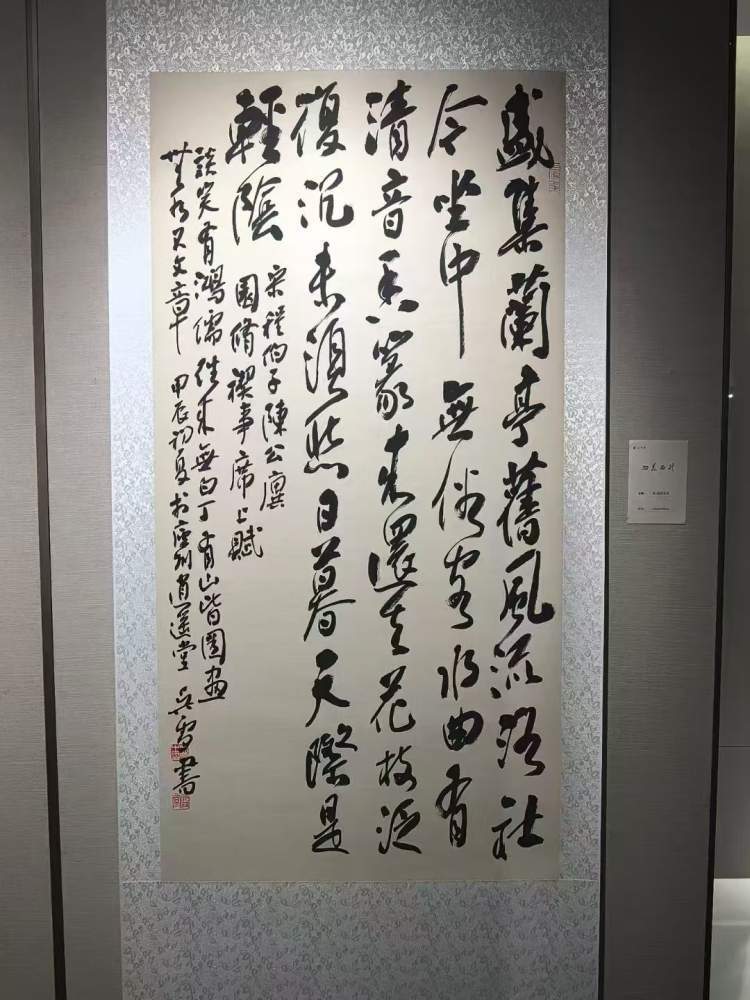 盛集蘭亭舊風流洛社
今坐中無俗客水曲有
清音香篆來還去花枝泛
復沉未須愁日暮天際是
輕陰
宋程伯子陳公廙
園脩禊事席上賦
談笑有鴻儒往來無白丁有山皆圖畫
無水不文章 甲辰初夏於深圳逍遙堂 書